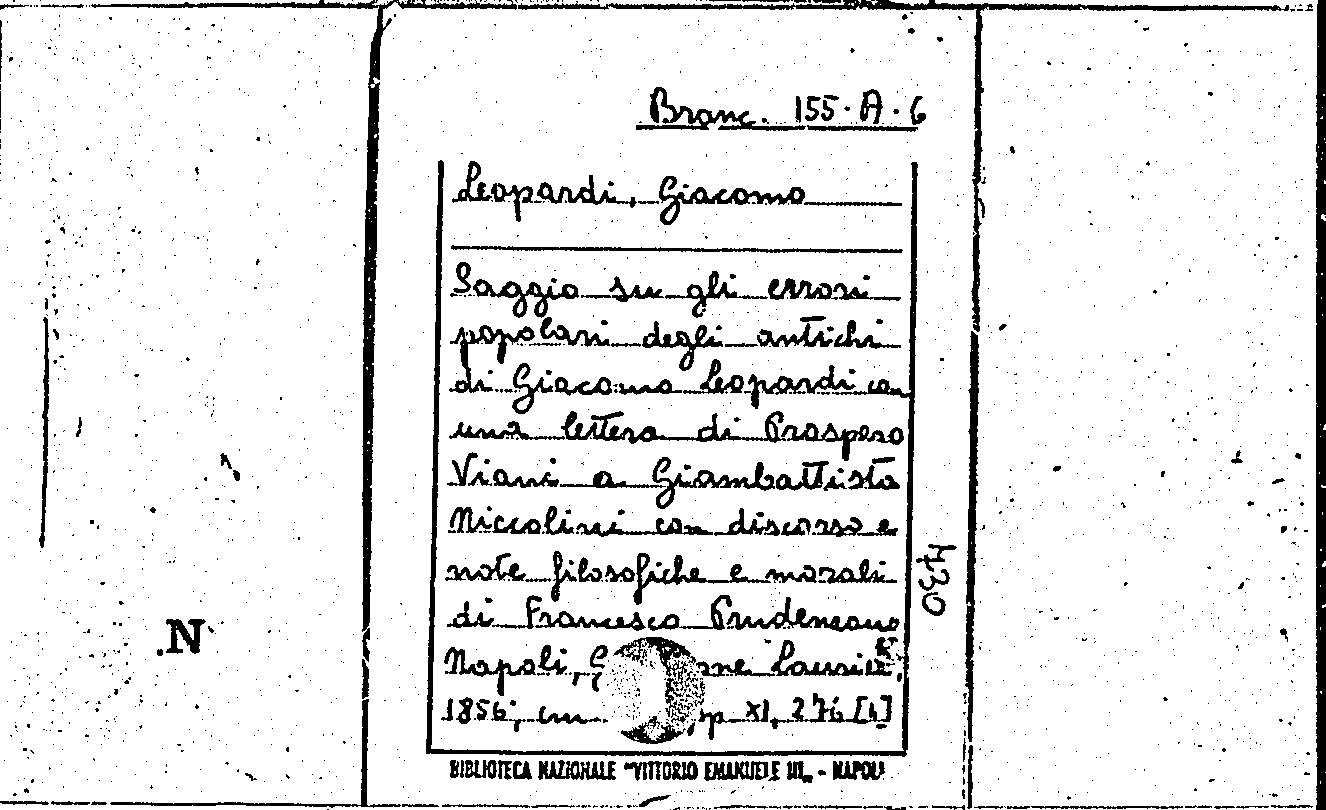 Branc. 155.A.6
Leopardi, Giacomo
Saggio su gli errori
popolari degli antichi
di Giacomo Leopardi con
una lettera di Prospero
Viani a Giambattista
Niccolini con discorso e
note filosofiche e morali
di Francesco Prudenzano
Napoli, G
1856, cm. p XI, 276 [4]
430
.N
BIBLIOTECA NAZIONALE "VITTORIO EMANUELE III„ - NAPOLI